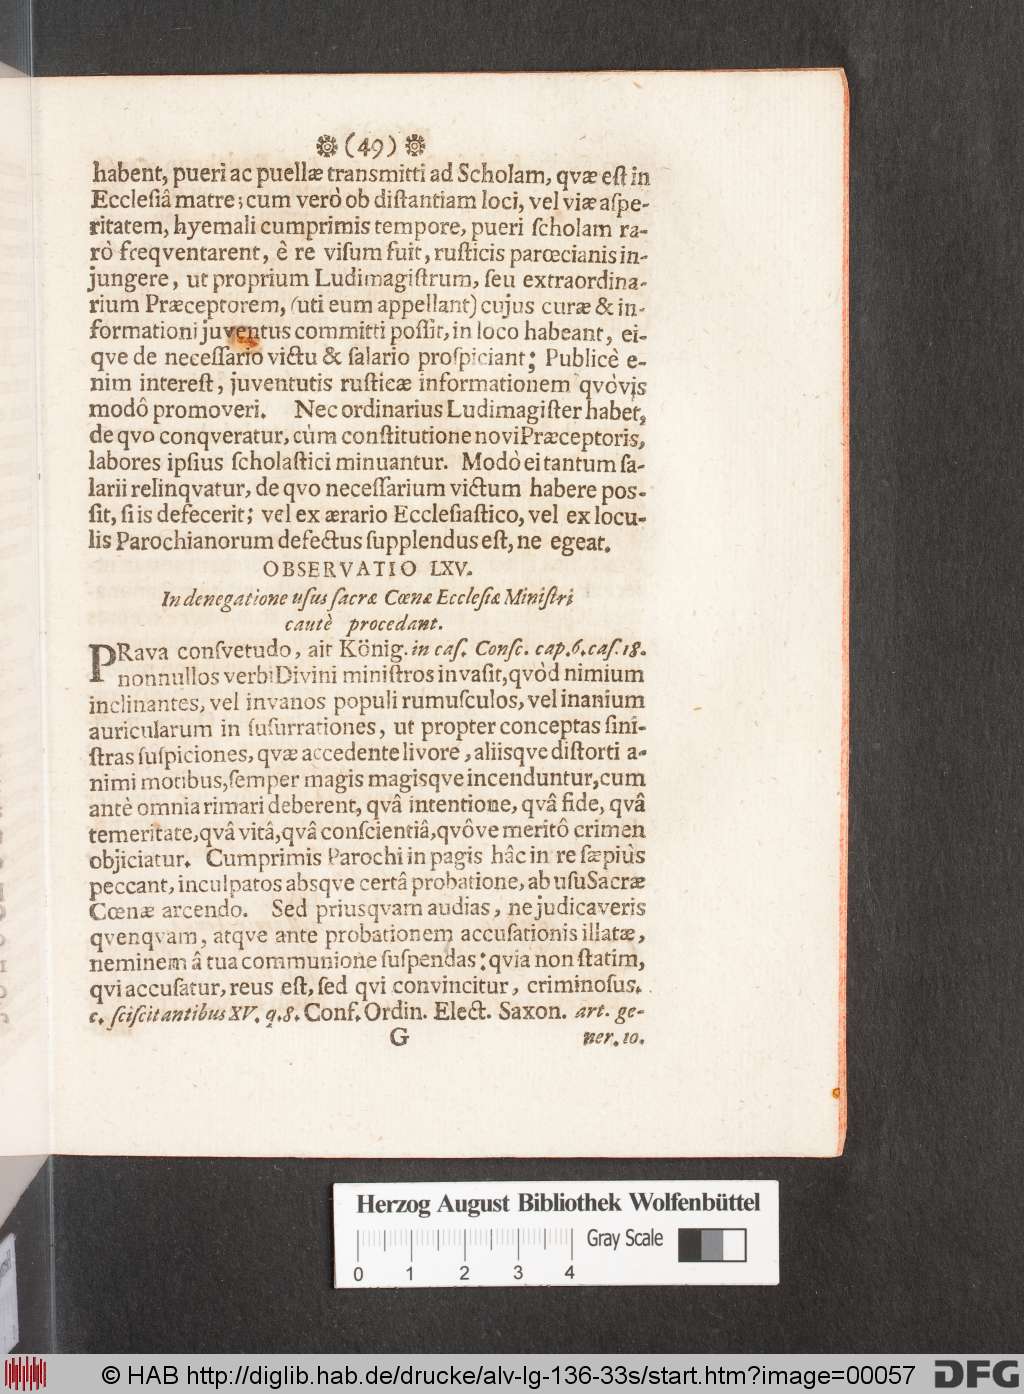 (49)
habent, pueri ac puellæ transmitti ad Scholam, qvæ eſt in
Eccleſiâ matre; cum verò ob diſtantiam loci, vel viæ aſpe-
ritatem, hyemali cumprimis tempore, pueri ſcholam ra-
rò freqventarent, è re viſum fuit, ruſticis parœcianis in-
jungere, ut proprium Ludimagiſtrum, ſeu extraordina-
rium Præceptorem, (uti eum appellant) cujus curæ & in-
formationi juventus committi poſſit, in loco habeant, ei-
qve de neceſſario victu & ſalario proſpiciant; Publicè e-
nim intereſt, juventutis ruſticæ informationem qvòvis
modô promoveri. Nec ordinarius Ludimagiſter habet,
de qvo conqveratur, cùm conſtitutione novi Præceptoris,
labores ipſius ſcholaſtici minuantur. Modò ei tantum ſa-
larii relinqvatur, de qvo neceſſarium victum habere poſ-
ſit, ſi is defecerit; vel ex ærario Eccleſiaſtico, vel ex locu-
lis Parochianorum defectus ſupplendus eſt, ne egeat.
OBSERVATIO LXV.
In denegatione uſus ſacræ Cœnæ Eccleſiæ Miniſtri
cautè procedant.
PRava conſvetudo, ait König. in caſ. Conſc. cap. 6. caſ. 18.
nonnullos verbi Divini miniſtros invaſit, qvòd nimium
inclinantes, vel invanos populi rumuſculos, vel inanium
auricularum in ſuſurrationes, ut propter conceptas ſini-
ſtras ſuſpiciones, qvæ accedente livore, aliisqve diſtorti a-
nimi motibus, ſemper magis magisqve incenduntur, cum
antè omnia rimari deberent, qvâ intentione, qvâ fide, qvâ
temeritate, qvâ vitâ, qvâ conſcientiâ, qvôve meritô crimen
objiciatur. Cumprimis Parochi in pagis hâc in re ſæpiùs
peccant, inculpatos absqve certâ probatione, ab uſu Sacræ
Cœnæ arcendo. Sed priusqvam audias, ne judicaveris
qvenqvam, atqve ante probationem accuſationis illatæ,
neminem â tua communione ſuſpendas: qvia non ſtatim,
qvi accuſatur, reus eſt, ſed qvi convincitur, criminoſus.
c. ſciſcitantibus XV. q. 8. Conf. Ordin. Elect. Saxon. art. ge-
G ner. 10.
Herzog August Bibliothek Wolfenbüttel
0 1 2 3 4 Gray Scale
© HAB http://diglib.hab.de/drucke/alv-lg-136-33s/start.htm?image=00057 DFG